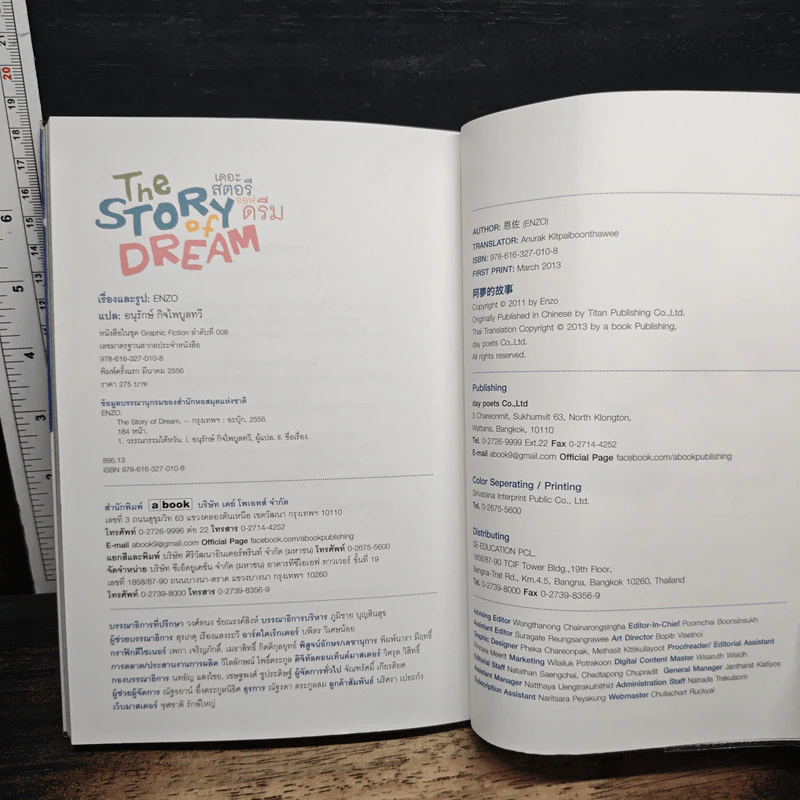 The
STORY
of
DREAM
เดอะ
สตอรี
ออฟ
ดรีม
เรื่องและรูป: ENZO
แปล: อนุรักษ์ กิจไพบูลทวี
หนังสือในชุด Graphic Fiction ลำดับที่ 008
เลขมาตรฐานสากลประจำหนังสือ
978-616-327-010-8
พิมพ์ครั้งแรก มีนาคม 2556
ราคา 275 บาท
ข้อมูลบรรณานุกรมของสำนักหอสมุดแห่งชาติ
ENZO.
The Story of Dream. -- กรุงเทพฯ : อะบุ๊ก, 2556.
184 หน้า.
1. วรรณกรรมไต้หวัน. I. อนุรักษ์ กิจไพบูลทวี, ผู้แปล. II. ชื่อเรื่อง.
895.13
ISBN 978-616-327-010-8
สำนักพิมพ์ a book บริษัท เดย์ โพเอทส์ จำกัด
เลขที่ 3 ถนนสุขุมวิท 63 แขวงคลองตันเหนือ เขตวัฒนา กรุงเทพฯ 10110
โทรศัพท์ 0-2726-9996 ต่อ 22 โทรสาร 0-2714-4252
E-mail abook9@gmail.com Official Page facebook.com/abookpublishing
แยกสีและพิมพ์ บริษัท ศิริวัฒนาอินเตอร์พริ้นท์ จำกัด (มหาชน) โทรศัพท์ 0-2675-5600
จัดจำหน่าย บริษัท ซีเอ็ดยูเคชั่น จำกัด (มหาชน) อาคารทีซีไอเอฟ ทาวเวอร์ ชั้นที่ 19
เลขที่ 1858/87-90 ถนนบางนา-ตราด แขวงบางนา กรุงเทพฯ 10260
โทรศัพท์ 0-2739-8000 โทรสาร 0-2739-8356-9
บรรณาธิการที่ปรึกษา วงศ์ทนง ชัยณรงค์สิงห์ บรรณาธิการบริหาร ภูมิชาย บุญสินสุข
ผู้ช่วยบรรณาธิการ สุรเกตุ เรืองแสงระวี อาร์ตไดเร็กเตอร์ บพิตร วิเศษน้อย
กราฟิกดีไซเนอร์ เพกา เจริญภักดิ์, เมธาสิทธิ์ กิตติกุลยุทธ์ พิสูจน์อักษร/เลขานุการ พิมพ์นารา มีฤทธิ์
การตลาด/ประสานงานการผลิต วิไลลักษณ์ โพธิ์ตระกูล ดิจิทัลคอนเท็นต์มาสเตอร์ วิศรุต วิสิทธิ์
กองบรรณาธิการ นทธัญ แสงไชย, เชษฐพงศ์ ชูประดิษฐ์ ผู้จัดการทั่วไป จัณฑรัศมิ์ เกียรติยศ
ผู้ช่วยผู้จัดการ ณัฐธยาน์ อึ้งตระกูลนิธิศ ธุรการ ณัฐรดา ตระกูลสม ลูกค้าสัมพันธ์ นริศรา เปยะกัง
เว็บมาสเตอร์ จุฬชาติ รักษ์ใหญ่
AUTHOR: 恩佐 (ENZO)
TRANSLATOR: Anurak Kitpaiboonthawee
ISBN: 978-616-327-010-8
FIRST PRINT: March 2013
阿夢的故事
Copyright © 2011 by Enzo
Originally Published in Chinese by Titan Publishing Co.,Ltd.
Thai Translation Copyright © 2013 by a book Publishing,
day poets Co.,Ltd.
All rights reserved.
Publishing
day poets Co.,Ltd
3 Chareonmit, Sukhumvit 63, North Klongton,
Wattana, Bangkok, 10110
Tel. 0-2726-9999 Ext.22 Fax 0-2714-4252
E-mail abook9@gmail.com Official Page facebook.com/abookpublishing
Color Seperating / Printing
Sirivatana Interprint Public Co., Ltd.
Tel. 0-2675-5600
Distributing
SE-EDUCATION PCL.
1858/87-90 TCIF Tower Bldg.,19th Floor,
Bangna-Trat Rd., Km.4.5, Bangna, Bangkok 10260, Thailand
Tel. 0-2739-8000 Fax 0-2739-8356-9
Advising Editor Wongthanong Chainarongsingha Editor-In-Chief Poomchai Boonsinsukh
Assistant Editor Suragate Reungsangrawee Art Director Bopitr Visetnoi
Graphic Designer Pheka Chareonpak, Methasit Kittikulayoot Proofreader/ Editorial Assistant
Pimnara Meerit Marketing Wilailuk Potrakoon Digital Content Master Wisaruth Wisidh
Editorial Staff Natathan Saengchai, Chedtapong Chupradit General Manager Jantharat Kiatiyos
Assistant Manager Natthaya Uengtrakulnithid Administration Staff Natrada Trakulsom
Subscription Assistant Naritsara Peyakung Webmaster Chullachart Ruckyai